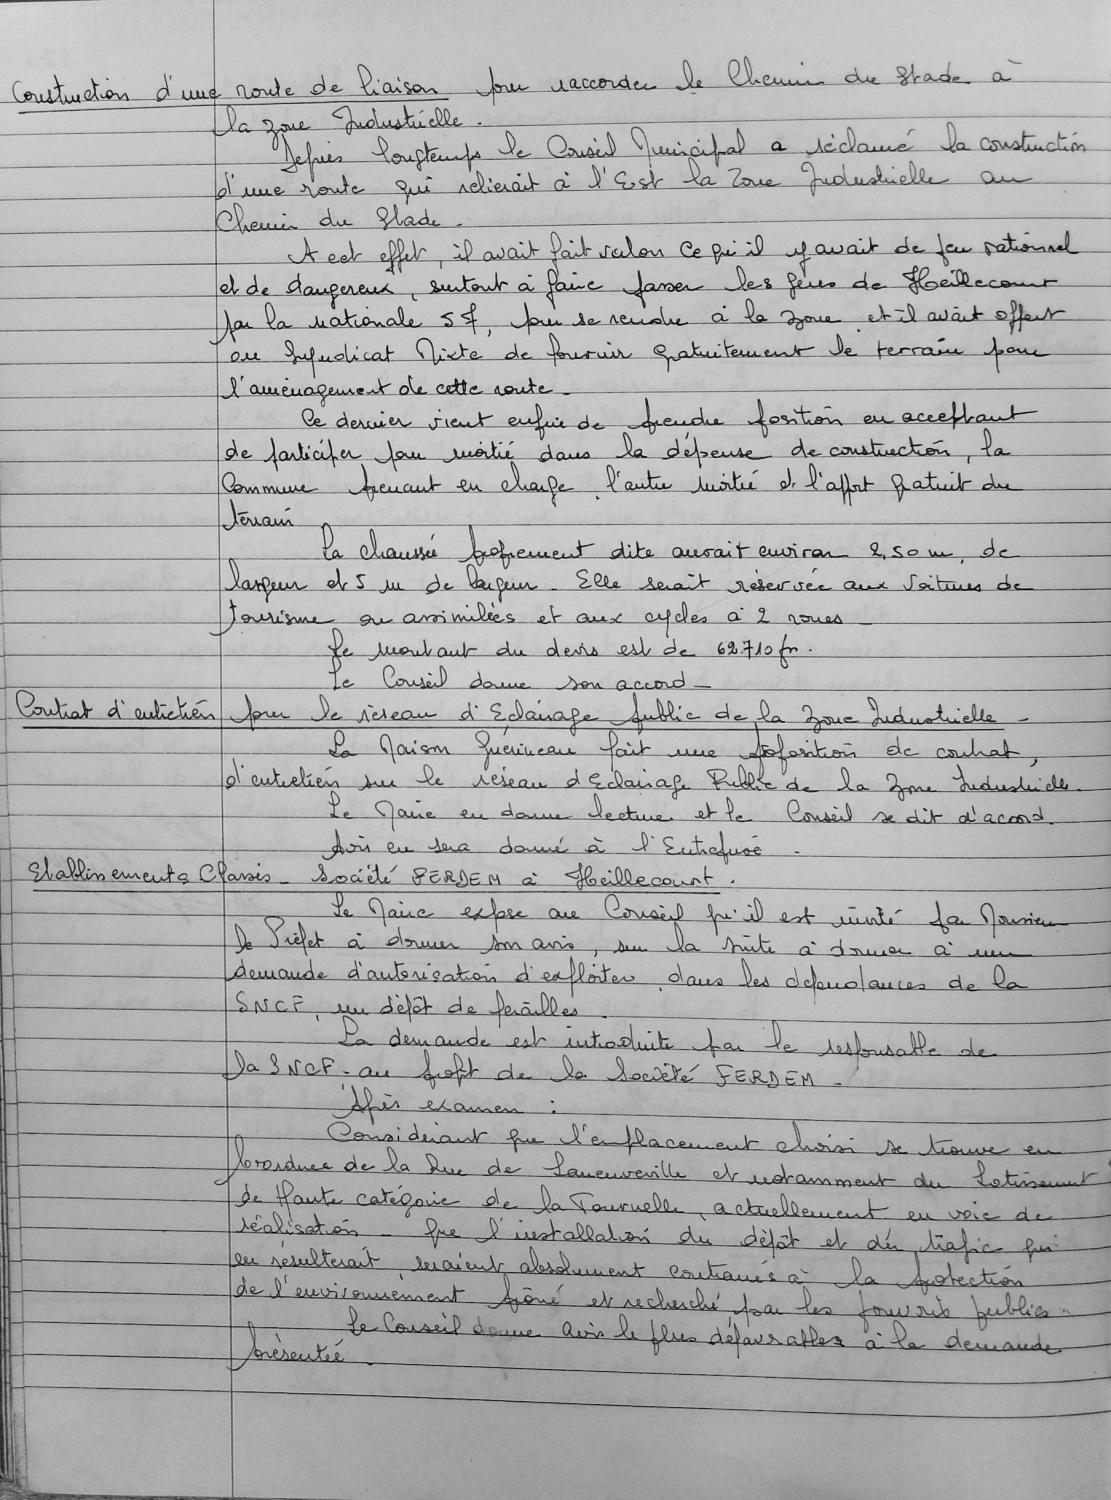 Construction d'une route de liaison pour raccorder le Chemin du Stade à
la zone Industrielle.
Depuis longtemps le Conseil Municipal a réclamé la construction
d'une route qui relierait à l'Est la Zone Industrielle au
Chemin du Stade.
A cet effet, il avait fait valoir ce qu'il y avait de peu rationnel
et de dangereux, surtout à faire passer les gens de Heillecourt
par la nationale 57, pour se rendre à la zone et il avait offert
au Syndicat Mixte de fournir gratuitement le terrain pour
l'aménagement de cette route.
Ce dernier vient enfin de prendre position en acceptant
de participer pour moitié dans la dépense de construction, la
Commune prenant en charge l'autre moitié et l'apport gratuit du
terrain
La chaussée proprement dite aurait environ 2,50 m. de
largeur et 5 m de largeur. Elle serait réservée aux voitures de
tourisme ou assimilées et aux cycles à 2 roues -
Le montant du devis est de 62.710 fr.
Le Conseil donne son accord -
Contrat d'entretien pour le réseau d'Eclairage public de la zone Industrielle -
La Maison Guérineau fait une proposition de contrat,
d'entretien sur le réseau d'Eclairage Public de la Zone Industrielle.
Le Maire en donne lecture et le Conseil se dit d'accord.
Avis en sera donné à l'Entreprise.
Etablissements Classés - Société FERDEM à Heillecourt.
Le Maire expose au Conseil qu'il est invité par Monsieur
le Préfet à donner son avis, sur la suite à donner à une
demande d'autorisation d'exploiter, dans les dépendances de la
SNCF, un dépôt de ferailles.
La demande est introduite par le responsable de
la SNCF - au profit de la Société FERDEM -
Après examen :
Considérant que l'emplacement choisi se trouve en
bordure de la Rue de Laneuveville et notamment du Lotissement
de Haute catégorie de la Tournelle, actuellement en voie de
réalisation - que l'installation du dépôt et du trafic qui
en résulterait, seraient absolument contraires à la protection
de l'environnement prôné et recherché par les pouvoirs publics -
Le Conseil donne avis le plus défavorable à la demande
présentée.